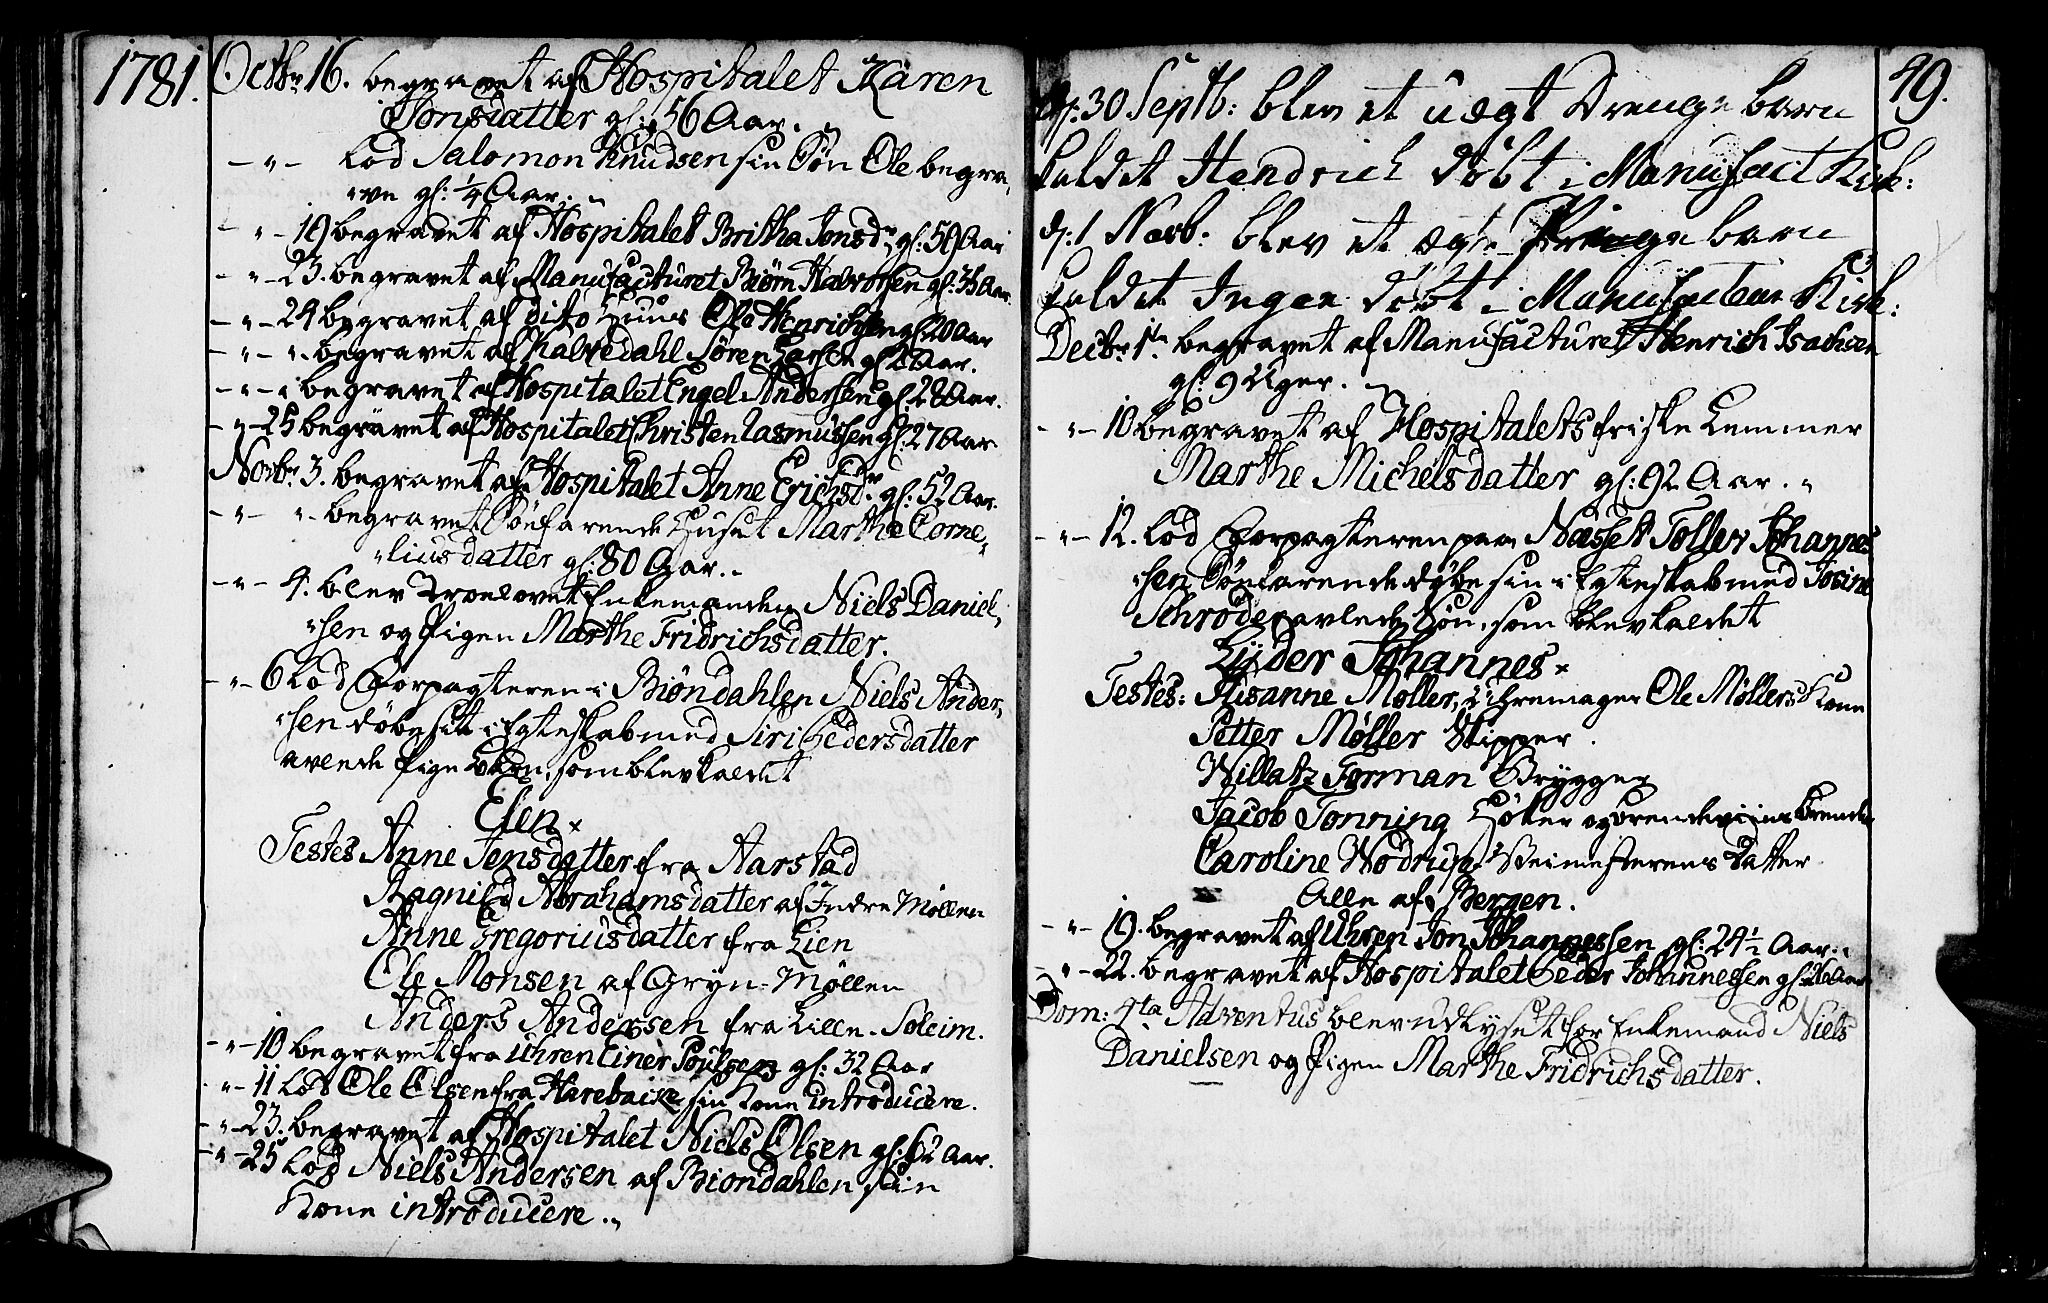 1781.
Octbr 16. begravet af Hospitalet Karen
Jonsdatter gl: 56 Aar.
- " - Lod Salomon Knudsen sin Søn Ole begra,
"ve gl: 1/4 Aar.
- " - 19 begravet af Hospitalet Britha Jonsdr gl: 59 Aar
- " - 23. begravet af Manufacturet Biørn Halvorsen gl: 35 Aar.
- " - 24 begravet af dito Huus Ole Henrichsen gl 20 Aar
- " - ". begravet af Kalvedahl Søren Larsen gl 2 Aar.
- " - " begravet af Hospitalet Engel Andersen gl 28 Aar.
- " - 25 begravet af Hospitalet Christen Rasmussen gl: 27 Aar
Novbr 3. begravet af Hospitalet Anne Erichsdr. gl: 52 Aar.
- " - ". begravet Søefarende Huset Marthe Corne,
"liusdatter gl: 80 Aar.
- " - 4. blev Troelovet Enkemanden Niels Daniel,
"sen og Pigen Marthe Fridrichsdatter.
- " - 6 Lod Forpagteren i Biøndahlen Niels Ander,
"sen døbe sit i Egteskab med Siri Pedersdatter
avlede Pige Barn, som blev kaldet
Elen ×
Testes Anne Jensdatter fra Aarstad
Ragnild Abrahamsdatter af Indre Møllen
Anne Gregoriusdatter fra Lien
Ole Monsen af Gryn-Møllen
Anders Andersen fra Lille-Soleim.
- " - 10 begravet fra Uhren Einer Poulsen gl: 32 Aar
- " - 11 Lod Ole Olsen fra Harebakke sin Kone introducere.
- " - 23. begravet af Hospitalet Niels Olsen gl: 62 Aar.
- " - 25 Lod Niels Andersen af Biondahlen sin
Kone introducere.
49.
d: 30 Septb: blev et uægt Drenge barn
kaldet Hendrich døbt i Manufact Kirk:
d: 1 Novb: blev et ægte Pige barn
kaldet Inger døbt i Manufactur Kirk:
Decbr 1te begravet af Manufacturet Henrich Isachsen
gl: 9 Uger.
- " - 10 begravet af Hospitalets friske Lemmer
Marthe Michelsdatter gl: 92 Aar.
- " - 12. Lod Forpagteren paa Næsset Toller Johannes
"sen Søefarende døbe sin i Egteskab med Josine
Schrøder avlede Søn, som blev kaldet
Lyder Johannes ×
Testes: Susanne Møller, Uhremager Ole Møllers Kone
Petter Møller Skipper.
Willatz Forman Brygger
Jacob Tonning Høker og Brendeviins Brender
Caroline Wodrup Veimesterens Datter
Alle af Bergen.
- " - 19. begravet af Uhren Jon Johannessen gl: 24 1/2 Aar.
- " - 22. begravet af Hospitalet Peder Johannessen gl: 26 Aar
Dom: 4ta Adventus blev udlyset for Enkemand Niels
Danielsen og Pigen Marthe Fridrichsdatter.